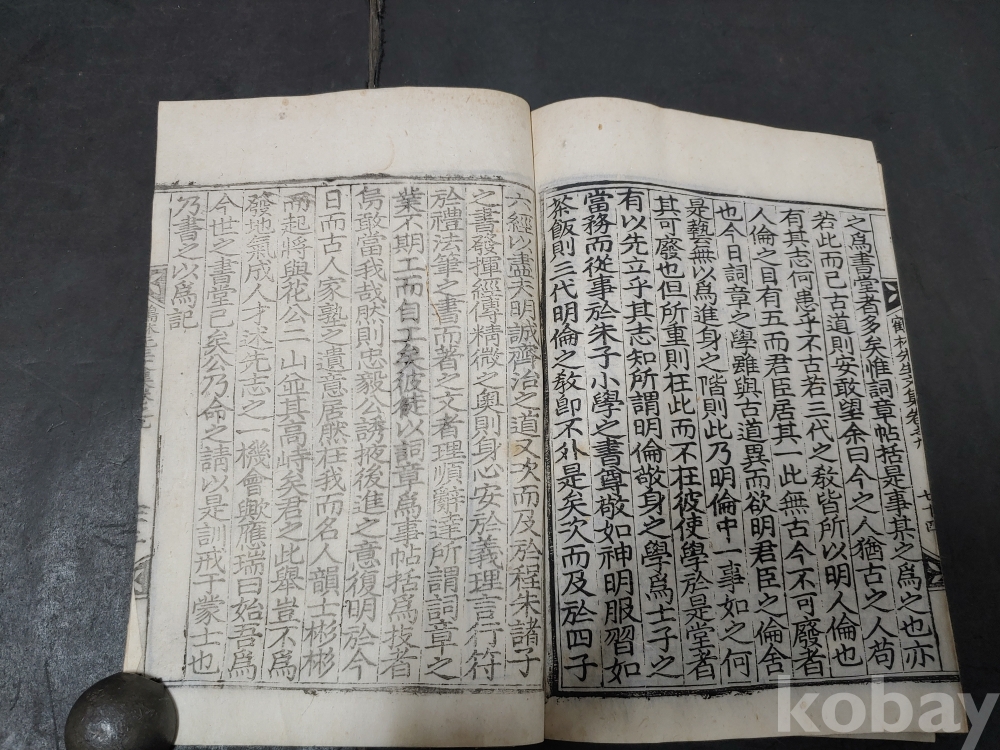 之爲書堂者多矣惟詞章帖括是事其之爲之也亦
若此而已古道則安敢望余曰今之人猶古之人苟
有其志何患乎不古若三代之敎皆所以明人倫也
人倫之目有五而君臣居其一此無古今不可廢者
也今日詞章之學雖與古道異而欲明君臣之倫舍
是藝無以爲進身之階則此乃明倫中一事如之何
其可廢也但所重則在此而不在彼使學於是堂者
有以先立乎其志知所謂明倫敬身之學爲士子之
當務而從事於朱子小學之書尊敬如神明服習如
茶飯則三代明倫之敎卽不外是矣次而及於四子
六經以盡夫明誠齊治之道又次而及於程朱諸子
之書發揮經傳精微之奧則身心安於義理言行符
於禮法筆之書而著之文者理順辭達所謂詞章之
業不期工而自工矣彼徒以詞章爲事帖括爲技者
烏敢當我哉然則忠毅公誘掖後進之意復明於今
日而古人家塾之遺意居然在我而名人韻士彬彬
而起將與花公二山並其高峙矣君之此擧豈不爲
發地氣成人才述先志之一機會歟應瑞曰始吾爲
今世之書堂已矣公乃命之請以是訓戒于蒙士也
乃書之以爲記
鶴林先生文集卷九
七十四
kobay